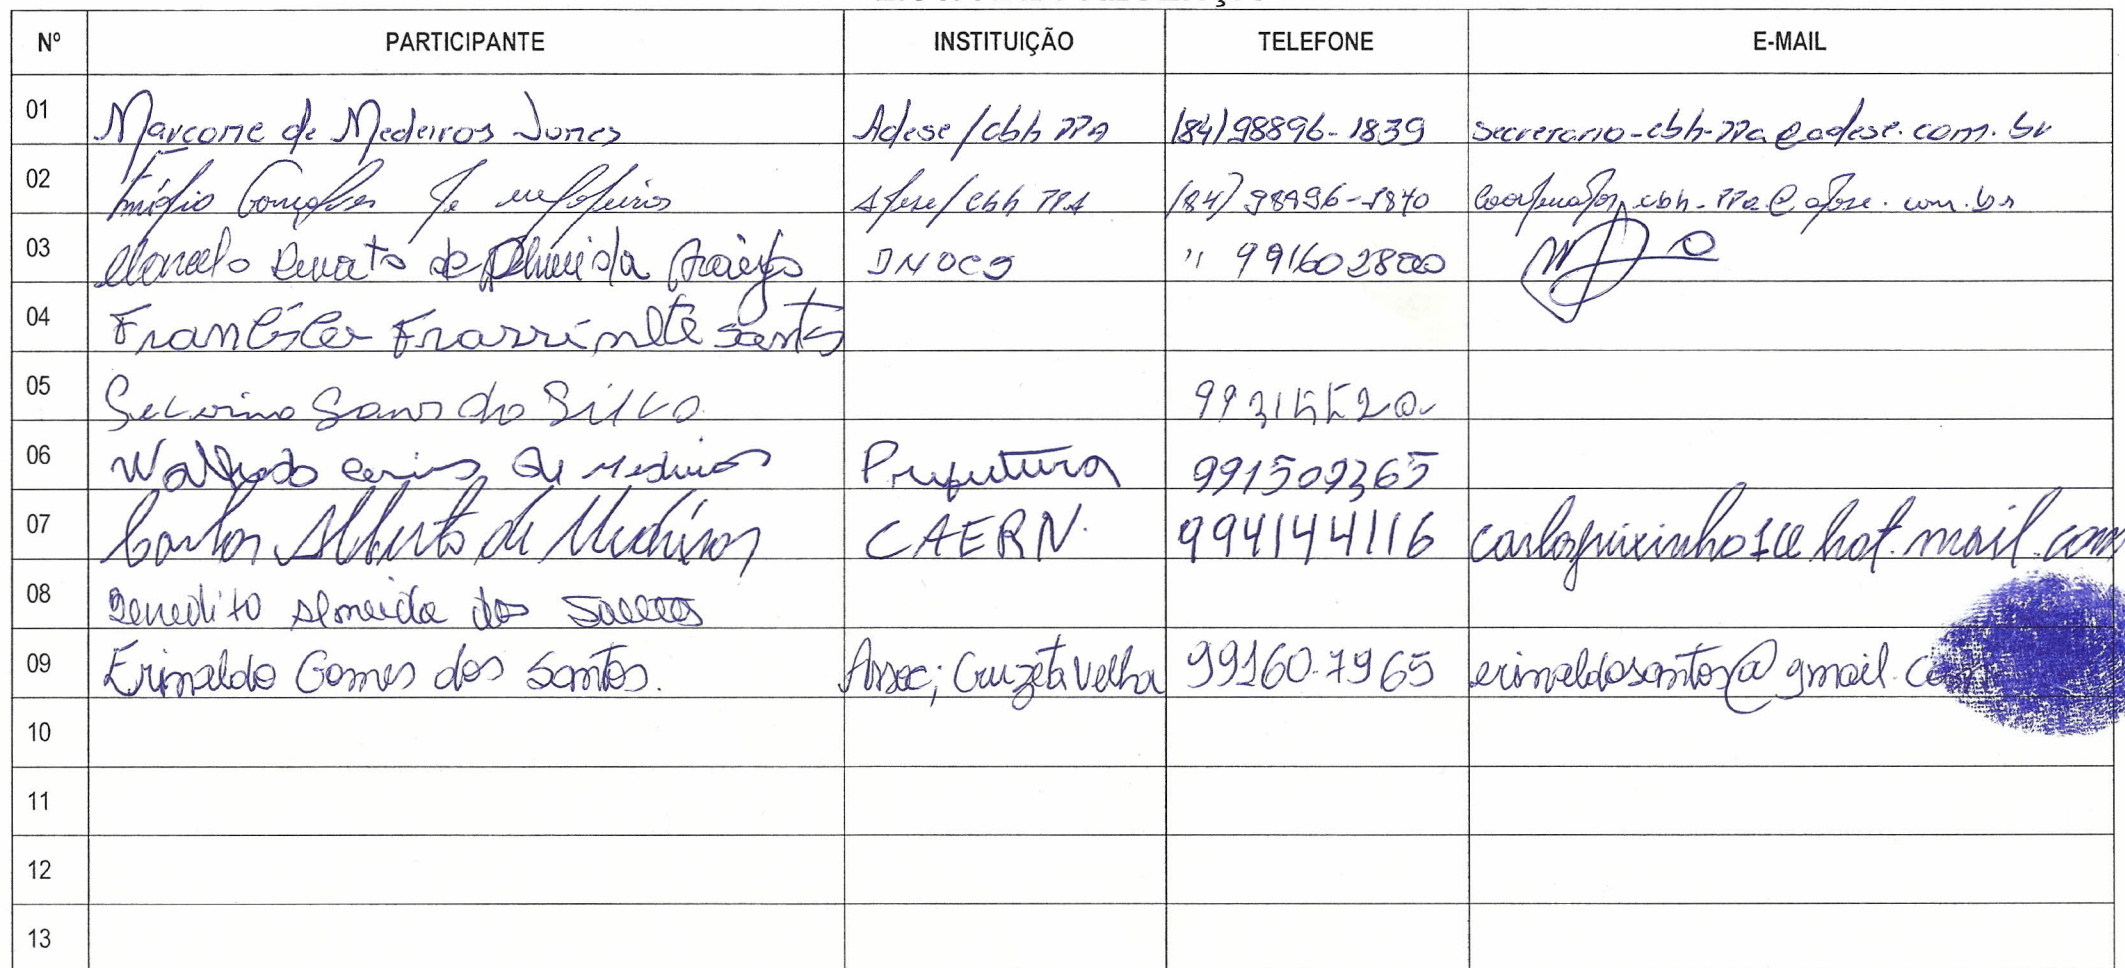 Nº PARTICIPANTE INSTITUIÇÃO TELEFONE E-MAIL
01 Marcone de Medeiros Nunes Adese/cbh PPA (84)98896-1839 secretario-cbh-PPa@adese.com.br
02 Emídio Gonçalves de Medeiros Adese/cbh PPA (84)98896-1840 coordenador.cbh-PPa@adese.com.br
03 Marcelo Renato de Almeida Araújo DNOCS " 991602800
04 Santos
05 da Silva
06 de Medeiros Prefeitura 991509365
07 Carlos Alberto de Medeiros CAERN. 994144116
08 Benedito Almeida dos Santos
09 Erinaldo Gomes dos Santos. Assoc; Cruzeta Velha 99160-7965 erinaldosantos@gmail.com
10
11
12
13